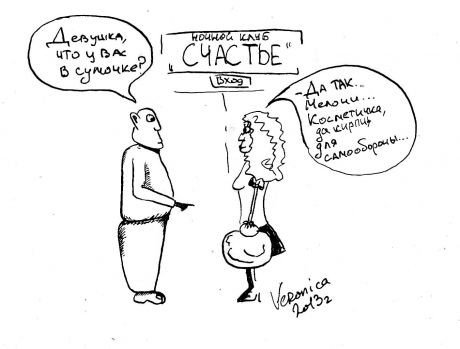 Девушка,
что у вас
в сумочке?
НОЧНОЙ КЛУБ
"СЧАСТЬЕ"
ВХОД
-Да так...
Мелочи...
Косметичка,
да кирпич
для
самообороны...
Veronica
2013г